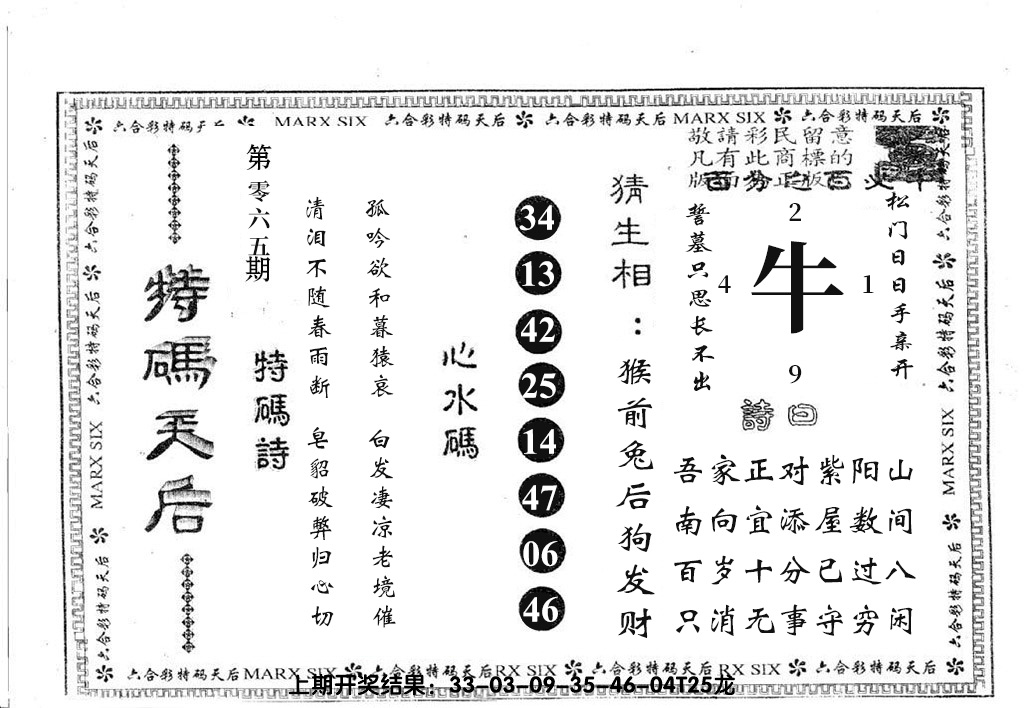 六合彩特码天后 MARX SIX 六合彩特码天后 六合彩特码天后 MARX SIX 六合彩特码天后
特碼天后
第零六五期
特碼詩
清泪不随春雨断 皂貂破弊归心切
孤吟欲和暮猿哀 白发凄凉老境催
心水碼
34
13
42
25
14
47
06
46
猜生相：猴前兔后狗发财
敬請彩民留意
凡有此商標的
誓墓只思长不出
2
4 牛 1
9
松门日日手亲开
詩曰
吾家正对紫阳山
南向宜添屋数间
百岁十分已过八
只消无事守穷闲
六合彩特码天后 MARX SIX 六合彩特码天后
六合彩特码天后 MARX SIX 六合彩特码天后
六合彩特码天后 MARX SIX 六合彩特码天后 RX SIX 六合彩特码天后 RX SIX 六合彩特码天后
上期开奖结果：33-03-09-35-46-04T25龙